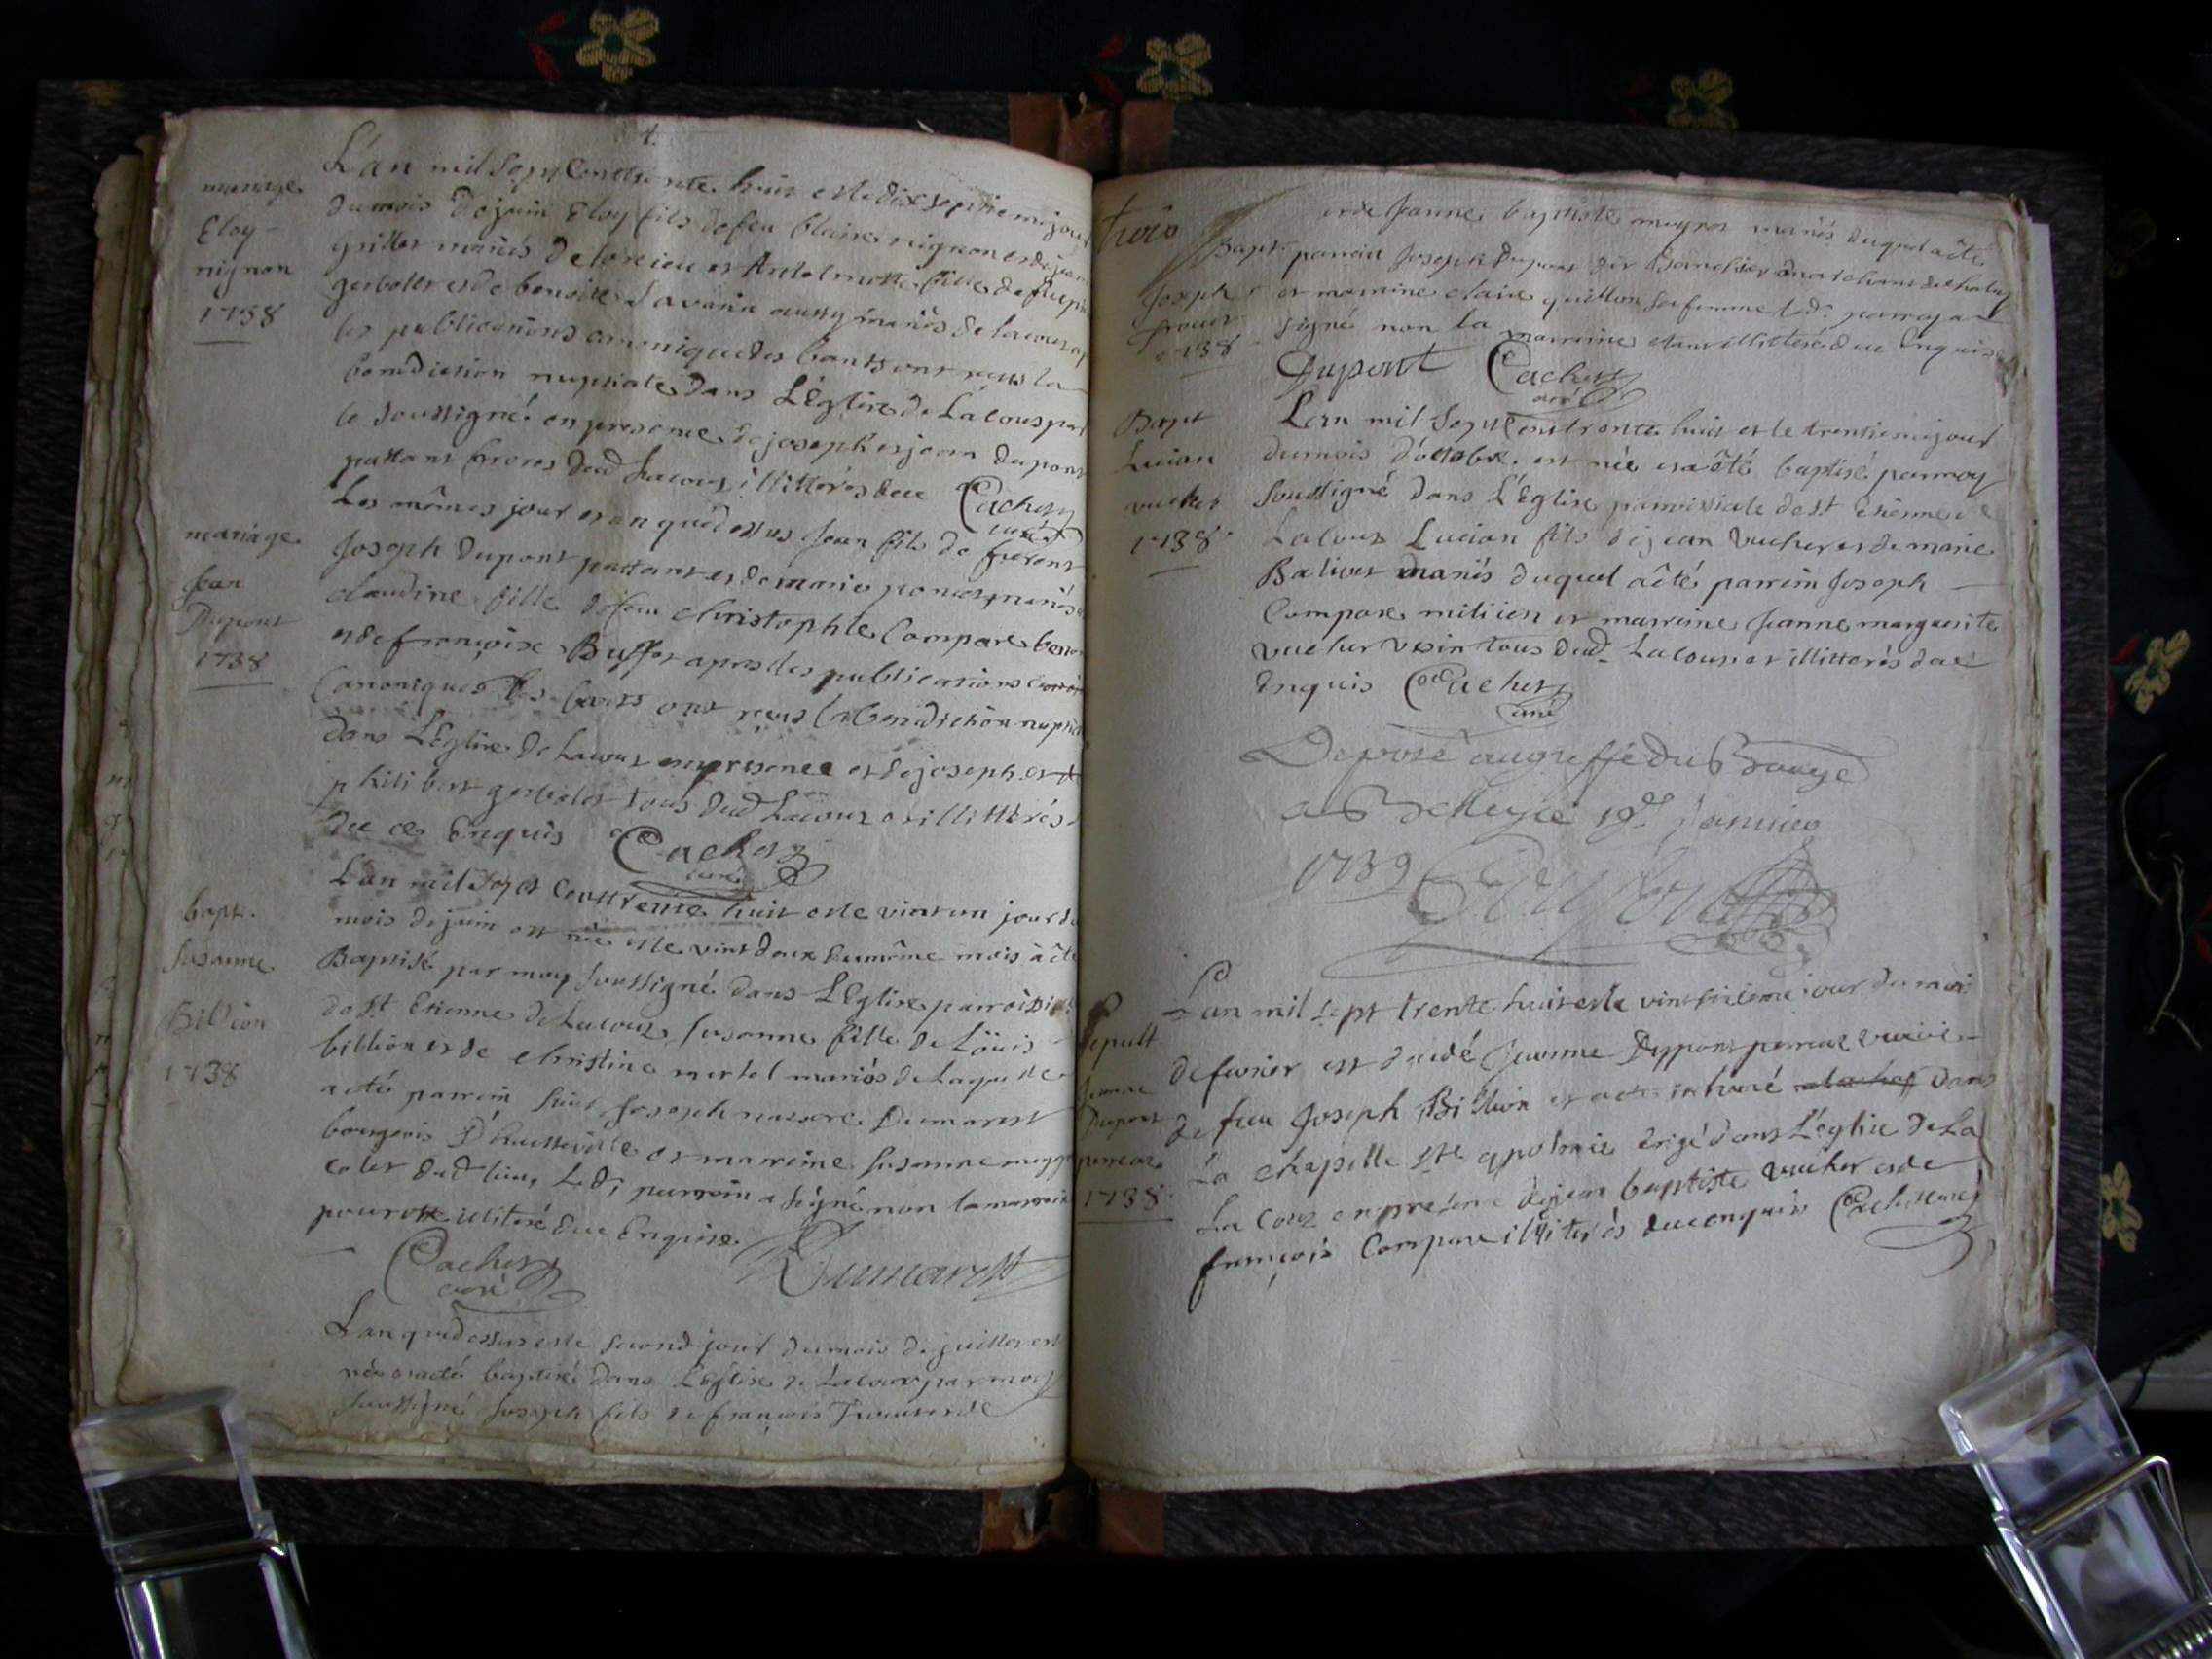 4.
mariage
Eloy
nignon
1738
L'an mil sept Cent trente huit et le dix septiemejour
du mois de juin Eloy fils de feu blaise nignon et de jeanne
grillet mariés de
gerbollet et de benoite Savarin aussy mariés de lacoux
les publications canonique des bants ont reçus la
benediction nuptiale dans L'Eglise de Lacoux par
le soussigné en presence de joseph et jean dupont
freres dud Lacoux illitterés de ce Cachet
curé
mariage
Jean
Dupont
1738
Les mêmes jour et an que dessus Jean fils de
Joseph Dupont et de marie mariés
claudine fille de feu christophle Compare
et de françoise Buffet apres les publications
Canoniques des bants ont reçus la benediction nuptiale
dans L'Eglise de Lacoux en presence et de joseph et
philibert gerbolet tous dud Lacoux et illitterés
de ce Enquis Cachet
curé
bapt.
susanne
Billion
1738
L'an mil sept Cent trente huit et le vint un jour du
mois de juin est née et le vint doux du même mois à été
Baptisé par moy soussigné dans L'Eglise parroissi
de St Etienne de Lacoux susanne fille de Loüis
billion et de christine martel mariés de laquelle
a été parrein sieur Joseph Dumarest
bourgeois D'hauteville et marreine susanne
colet dud lieu, Led parrein a signé non la marreine
pour illiteré de ce Enquise.
Cachet
curé
Dumarest
L'an que dessus et le second jour du mois de juillet est
né et a eté baptisé dans L'Eglise de Lacoux par moy
soussigné Joseph fils de françois et de
trois
Bapt.
Joseph
1738
et de Jeanne baptiste mariés duquel a êté
parrein Joseph Dupont marchant de
et marreine claire quillon sa femme led. parrein a
signé non la marreine etant illitteré de ce Enquise
Dupont Cachet
curé
Bapt
Lucian
vucher
1738
L'an mil sept Cent trente huit et le trentiemejour
du mois d'octobre est née et a été baptisé par moy
soussigné dans L'Eglise parroissiale de St Etienne de
Lacoux Lucian fils de jean Vucher et de marie
Balivet mariés duquel a été parrein Joseph
Compare milicien et marreine Jeanne marguerite
vucher tous dud. Lacoux et illitterés de ce
Enquis Cachet
curé
Deposé au greffe du Bouge
a Belley ce 19e Janvier
1739
Sepult
jeanne
Dupont
perreaz
1738
L'an mil sept trente huit et le vint sixieme jour du moi
de fevrier est decedé Jeanne Dupont perreaz veuve
de feu Joseph Billion et a eté inhumé dans
La chapelle Ste appolonie erigé dans L'eglise de La
La Coux en presence de jean baptiste vucher et de
françois Compare illiterés de ce enquis Cachet curé